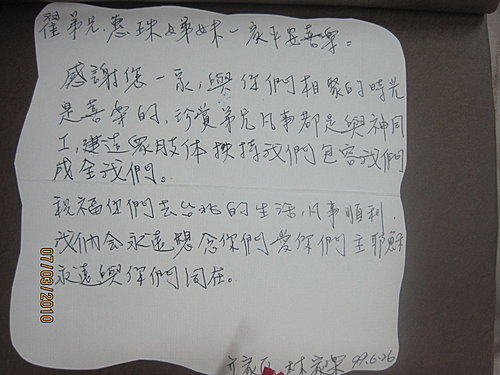 翟弟兄.惠珠姊妹一家平安喜樂:
感謝您一家,與你們相聚的時光
是喜樂的,珍賞弟兄凡事都是與神同
工,建造眾肢体扶持我們包容我們
成全我們。
祝福你們去台北的生活,凡事順利.
我們会永遠想念你們愛你們主耶穌
永遠與你們同在。
林 99.6.26
07/03/2010